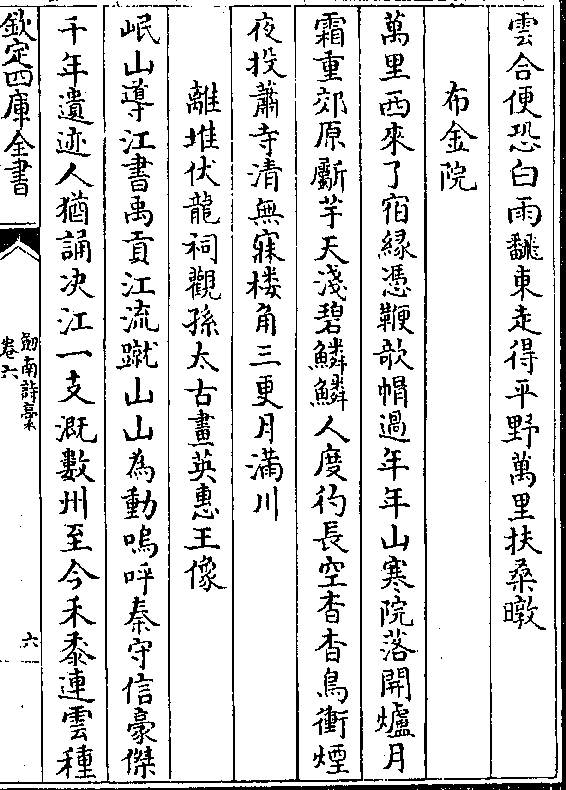 雲合便恐白雨飜東走得平野萬里扶桑暾
布金院
萬里西來了宿縁憑鞭欹帽過年年山寒院落開爐月
霜重郊原斸芋天淺碧鱗鱗人度彴長空杳杳鳥衝煙
夜投蕭寺清無寐楼角三更月滿川
離堆伏龍祠觀孫太古畫英惠王像
岷山導江書禹貢江流蹴山山為動嗚呼秦守信豪傑
千年遺迹人猶誦决江一支溉數州至今禾黍連雲種
欽定四庫全書
劒南詩藁
卷六
六